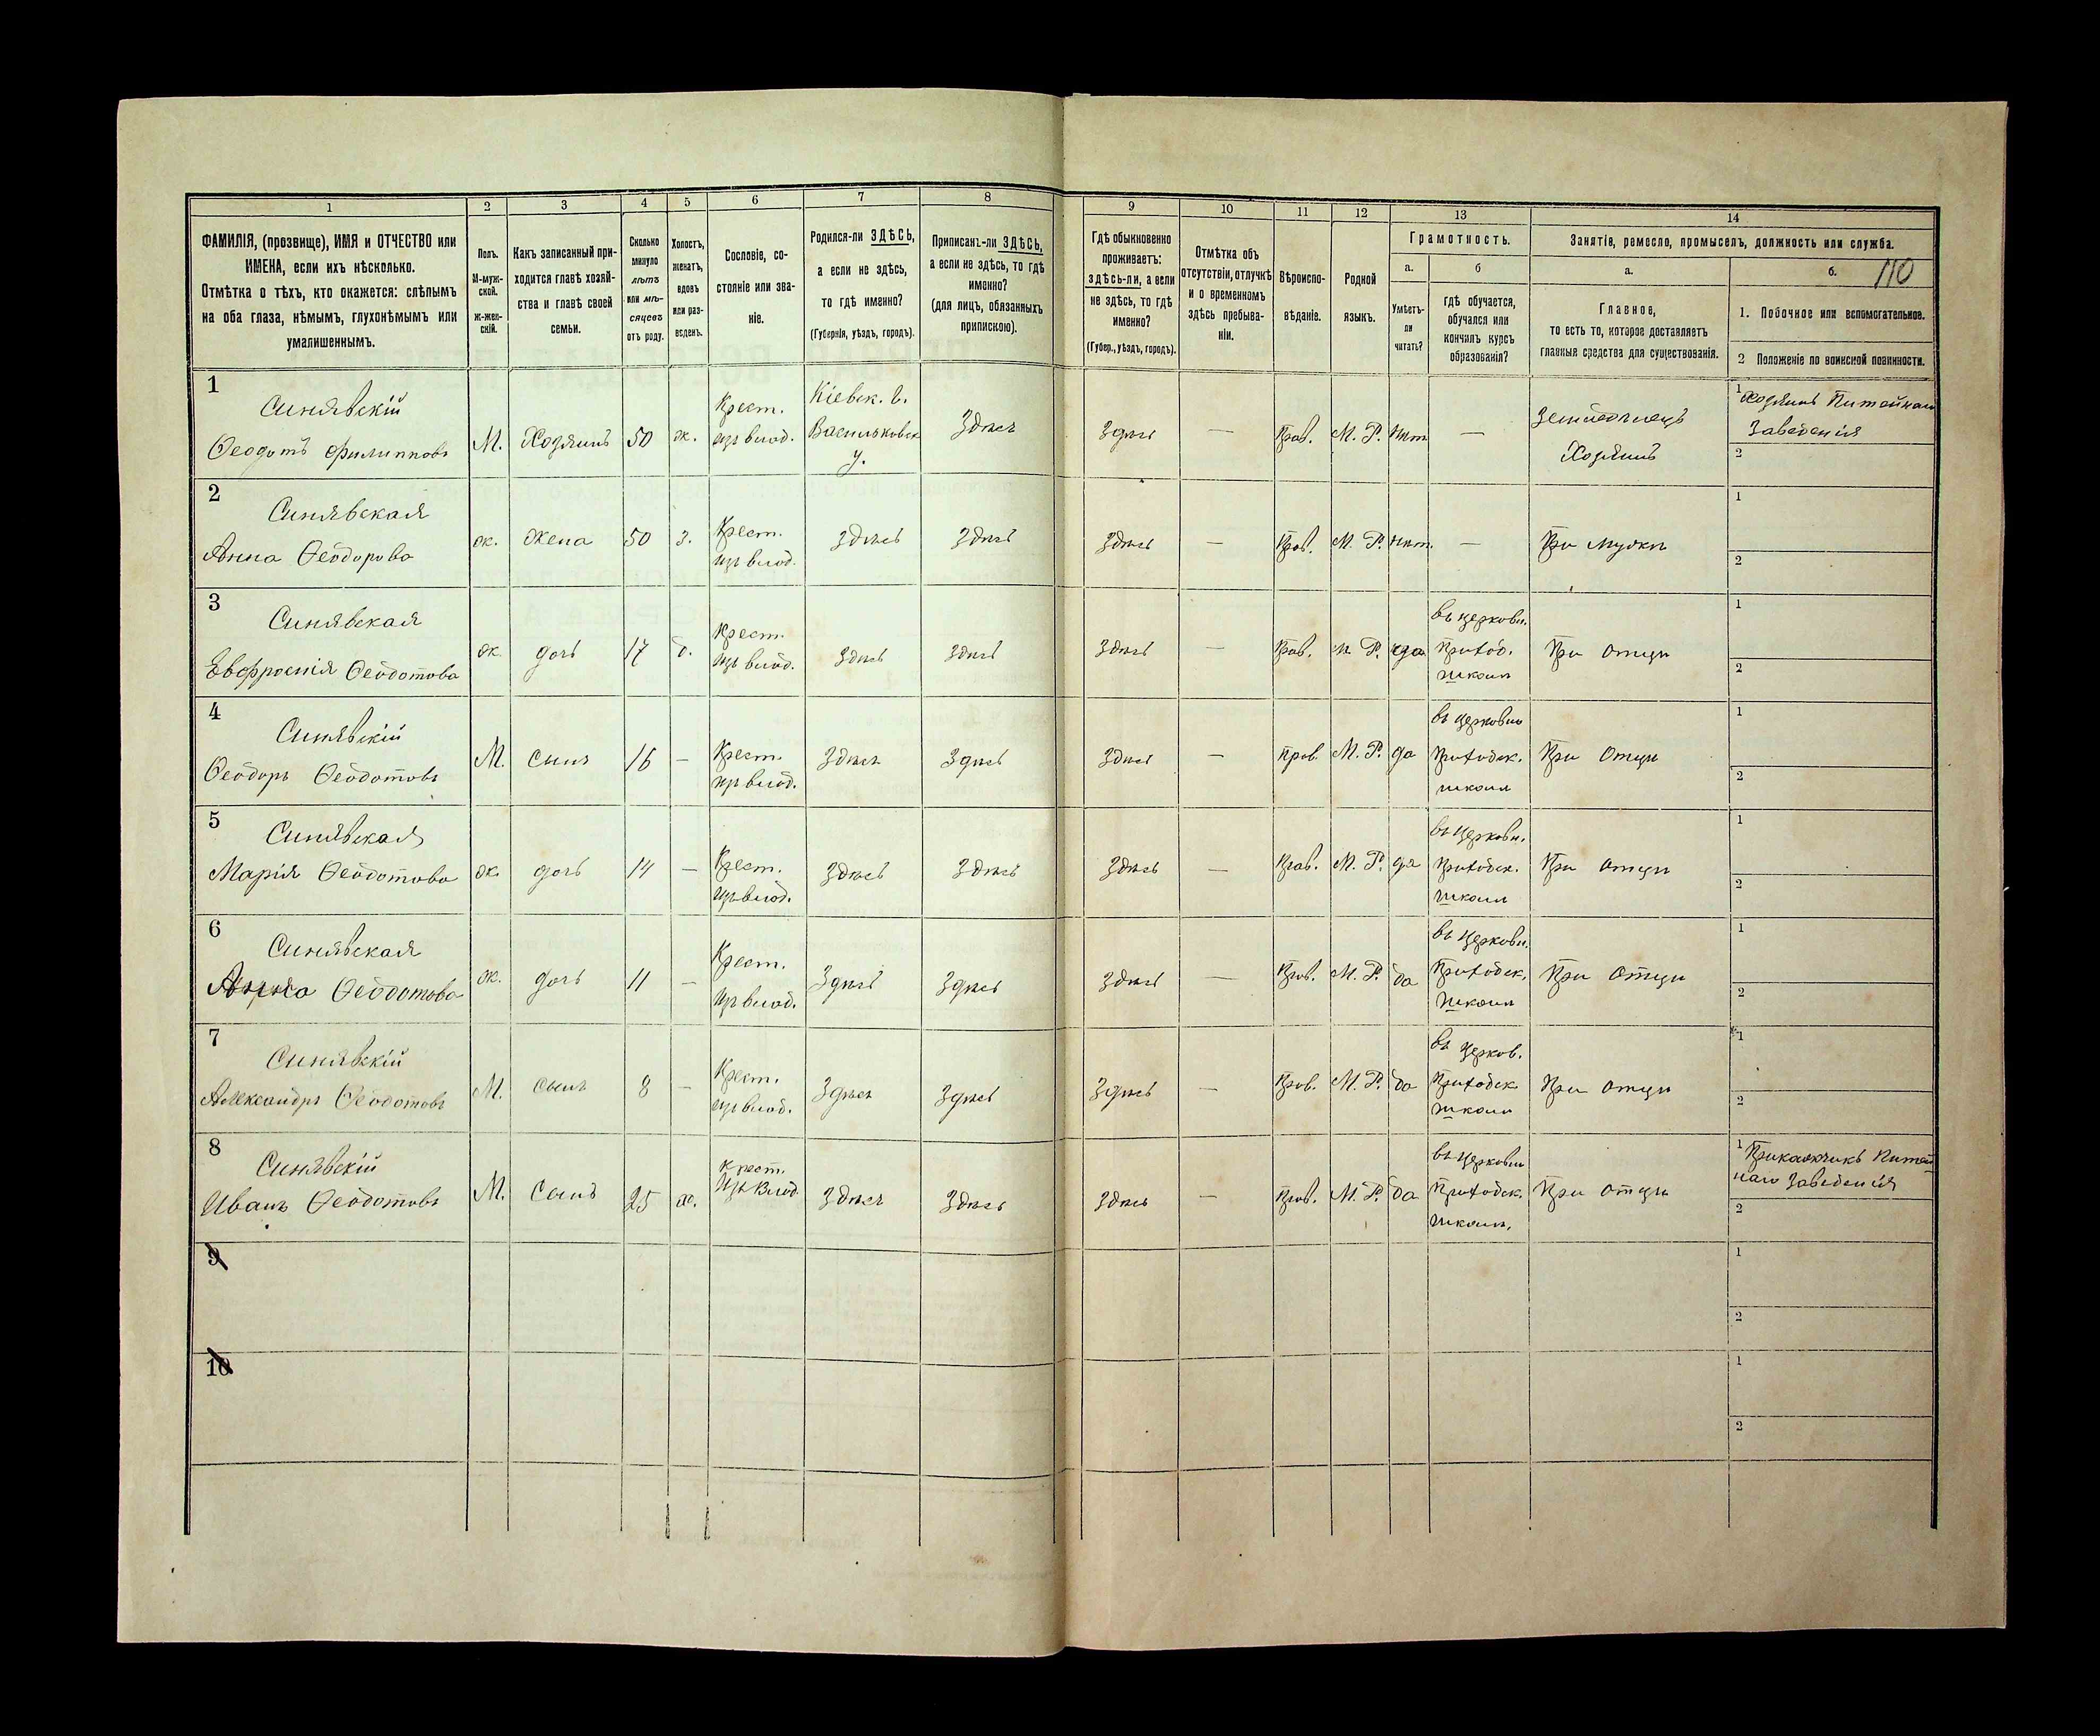 1 2 3 4 5 6 7 8 9 10 11 12 13 14
ФАМИЛІЯ, (прозвище), ИМЯ и ОТЧЕСТВО или
ИМЕНА, если ихъ нѣсколько.
Отмѣтка о тѣхъ, кто окажется: слѣпымъ
на оба глаза, нѣмымъ, глухонѣмымъ или
умалишеннымъ.
Полъ.
М-муж-
ской.
Ж-жен-
скій.
Какъ записанный при-
ходится главѣ хозяй-
ства и главѣ своей
семьи.
Сколько
минуло
лѣтъ
или мѣ-
сяцевъ
отъ роду.
Холостъ,
женатъ,
вдовъ
или раз-
веденъ.
Сословіе, со-
стояніе или зва-
ніе.
Родился-ли ЗДѢСЬ,
а если не здѣсь,
то гдѣ именно?
(Губернія, уѣздъ, городъ).
Приписанъ-ли ЗДѢСЬ,
а если не здѣсь, то гдѣ
именно?
(для лицъ, обязанныхъ
припискою).
Гдѣ обыкновенно
проживаетъ:
здѣсь-ли, а если
не здѣсь, то гдѣ
именно?
(Губер., уѣздъ, городъ).
Отмѣтка объ
отсутствіи, отлучкѣ
и о временномъ
здѣсь пребыва-
ніи.
Вѣроиспо-
вѣданіе.
Родной
языкъ.
Грамотность.
а.
Умѣетъ-
ли
читать?
б
гдѣ обучается,
обучался или
кончилъ курсъ
образованія?
Занятіе, ремесло, промыселъ, должность или служба.
а.
Главное,
то есть то, которое доставляетъ
главныя средства для существованія.
б. 110
1. Побочное или вспомогательное.
2 Положеніе по воинской повинности.
1
Синявскій
Ѳеодотъ Филипповъ
М. Хозяинъ 50 ж.
Крест.
изъ влад.
Кіевск. г.
Васильковск
у.
Здѣсь Здѣсь — Прав. М. Р. нѣт —
Земледѣлецъ
Хозяинъ
1 Хозяинъ Питейнаго
Заведенія
2
2
Синявская
Анна Ѳеодорова
ж. Жена 50 з.
Крест.
изъ влад.
Здѣсь Здѣсь Здѣсь — Прав. М. Р. нѣт. — При мужѣ
1
2
3
Синявская
Евфросинія Ѳеодотова
ж. дочь 17 д.
Крест.
изъ влад.
Здѣсь Здѣсь Здѣсь — Прав. М. Р. да
въ церковн.
приход.
школѣ
При отцѣ
1
2
4
Синявскій
Ѳеодоръ Ѳеодотовъ
М. Сынъ 16 —
Крест.
изъ влад.
Здѣсь Здѣсь Здѣсь — Прав. М. Р. да
въ церковно
приходск.
школѣ
При Отцѣ
1
2
5
Синявская
Марія Ѳеодотова
ж. дочь 14 —
Крест.
изъ влад.
Здѣсь Здѣсь Здѣсь — Прав. М. Р. да
въ церковн.
приходск.
школѣ
При отцѣ
1
2
6
Синявская
Ѳеодотова
ж. дочь 11 —
Крест.
изъ влад.
Здѣсь Здѣсь Здѣсь — Прав. М. Р. да
въ церковн.
приходск.
школѣ
При Отцѣ
1
2
7
Синявскій
Александръ Ѳеодотовъ
М. сынъ 8 —
Крест.
изъ влад.
Здѣсь Здѣсь Здѣсь — Прав. М. Р. да
въ церков.
приходск
школѣ
При отцѣ
1
2
8
Синявскій
Иванъ Ѳеодотовъ
М. Сынъ 25 х.
Крест.
Изъ Влад.
Здѣсь Здѣсь Здѣсь — Прав. М. Р. да
въ церковно
приходск.
школѣ.
При отцѣ
1 Прикажчикъ Питей
наго Заведенія
2
9
1
2
10
1
2